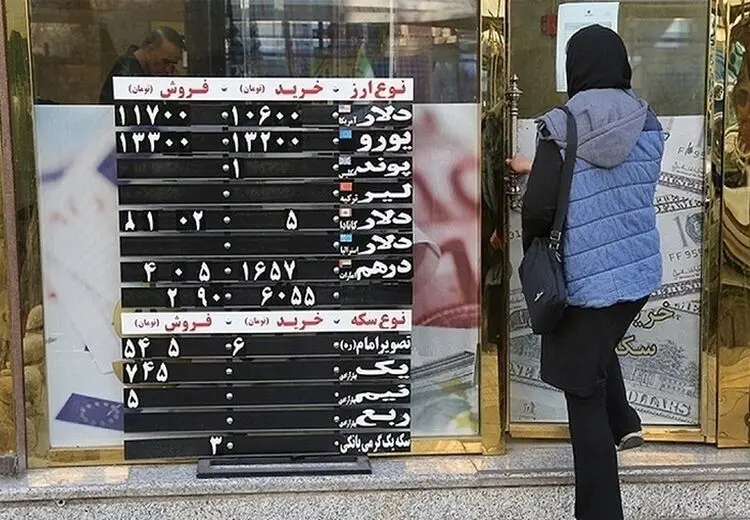 نوع ارز خرید (تومان) فروش (تومان)
دلار آمریکا ۱۰۶۰۰ ۱۱۷۰۰
یورو ۱۳۲۰۰ ۱۳۳۰۰
پوند انگلیس ۱
لیر ترکیه
دلار کانادا ۵ ۸۱۰۲
دلار استرالیا
درهم امارات ۱۶۵۷ ۴۰۵
۶۰۵۵ ۲۹۰
نوع سکه خرید (تومان) فروش (تومان)
تصویر امام (ره) ۶ ۵۴۵
یک بهار آزادی ۷۴۵
نیم بهار آزادی ۵
ربع بهار آزادی
سکه یک گرمی بانکی ۳
خرید
سکه
DOLLARS